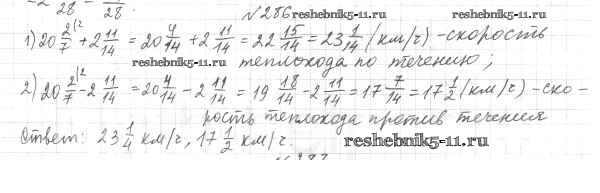 -2 28 - 28.
№286 reshebnik5-11.ru
1) 20 2/7 |2 + 2 11/14 = 20 4/14 + 2 11/14 = 22 15/14 = 23 1/14 (км/ч) - скорость
reshebnik5-11.ru теплохода по течению;
2) 20 2/7 |2 - 2 11/14 = 20 4/14 - 2 11/14 = 19 18/14 - 2 11/14 = 17 7/14 = 17 1/2 (км/ч) - ско-
рость теплохода против течения
Ответ: 23 1/4 км/ч, 17 1/2 км/ч. reshebnik5-11.ru